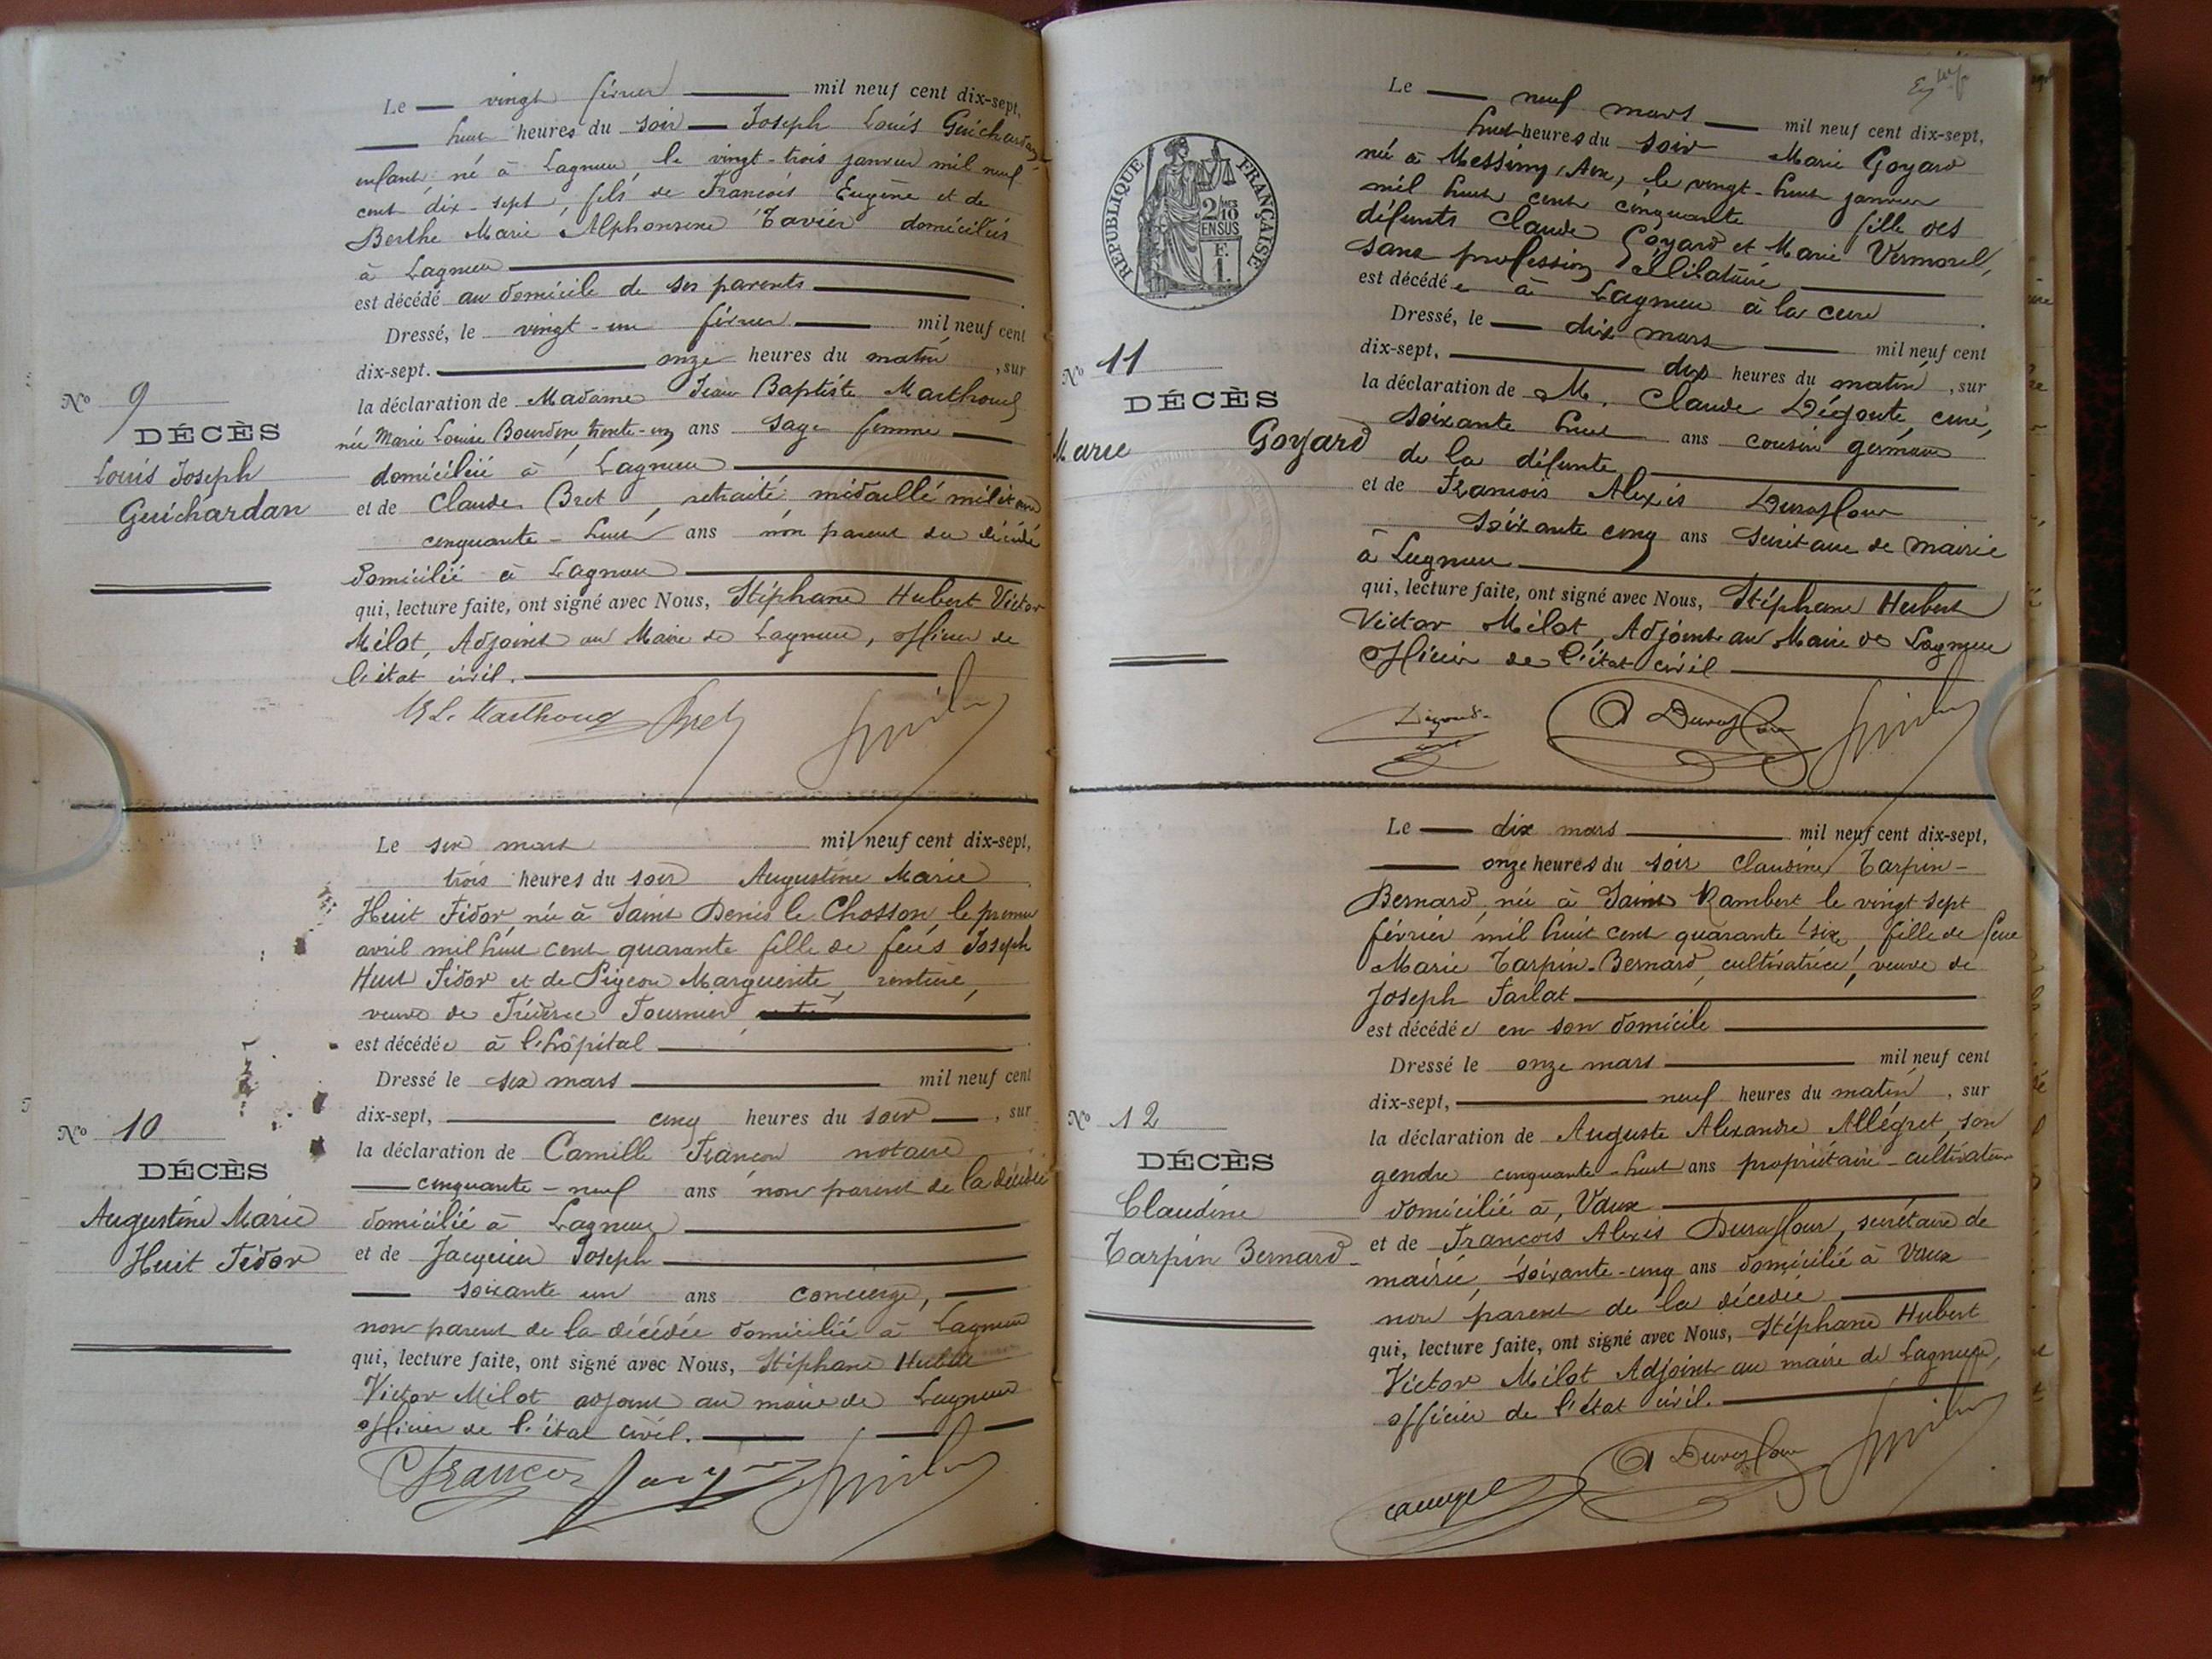 Le vingt février mil neuf cent dix-sept,
huit heures du soir Joseph Louis Guichardan,
enfant né à Lagnieu, le vingt-trois janvier mil neuf
cent dix-sept, fils de François Eugène et de
Berthe Marie Alphonsine Tavier domiciliés
à Lagnieu
est décédé au domicile de ses parents
Dressé, le vingt-un février mil neuf cent
dix-sept. onze heures du matin, sur
la déclaration de Madame Jean Baptiste Marthoud
née Marie Louise Bourdin, trente-un ans sage femme
domiciliée à Lagnieu
et de Claude Bret, retraité médaillé militaire
cinquante-huit ans non parent du décédé
domicilié à Lagnieu
qui, lecture faite, ont signé avec Nous, Stéphane Hubert Victor
Milot, Adjoint au Maire de Lagnieu, officier de
l'état civil.
Nº 9
DÉCÈS
Louis Joseph
Guichardan
M L. Marthoud Bret
Le six mars mil neuf cent dix-sept,
trois heures du soir Augustine Marie
Huit Fidor, née à Saint Denis le Chosson, le premier
avril mil huit cent quarante fille de feus Joseph
Huit Fidor et de Pigeon Marguerite, rentière,
veuve de Fournier
est décédée à l'hôpital
Dressé le six mars mil neuf cent
dix-sept, cinq heures du soir, sur
la déclaration de Camille Françon notaire
cinquante-neuf ans non parent de la décédée
domicilié à Lagnieu
et de Jacquier Joseph
soixante un ans concierge,
non parent de la décédée domicilié à Lagnieu
qui, lecture faite, ont signé avec Nous, Stéphane Hubert
Victor Milot adjoint au maire de Lagnieu
officier de l'état civil.
Nº 10
DÉCÈS
Augustine Marie
Huit Fidor
C Françon
Le neuf mars mil neuf cent dix-sept,
huit heures du soir Marie Goyard
née à Messimy, Ain, le vingt-huit janvier
mil huit cent cinquante fille des
défunts Claude Goyard et Marie Vermorel,
sans profession célibataire
est décédée à Lagnieu à la cure
Dressé, le dix mars mil neuf cent
dix-sept, dix heures du matin, sur
la déclaration de M. Claude Dégoute, curé,
soixante huit ans cousin germain
de la défunte
et de François Alexis Duraflour
soixante cinq ans secrétaire de mairie
à Lagnieu
qui, lecture faite, ont signé avec Nous, Stéphane Hubert
Victor Milot, Adjoint au Maire de Lagnieu
officier de l'état civil
REPUBLIQUE FRANÇAISE
2/10
EN SUS
F.
1.
Nº 11
DÉCÈS
Marie Goyard
A Duraflour
Le dix mars mil neuf cent dix-sept,
onze heures du soir Claudine Tarpin-
Bernard, née à Saint Rambert le vingt sept
février mil huit cent quarante six, fille de feue
Marie Tarpin-Bernard, cultivatrice, veuve de
Joseph Farlat
est décédée en son domicile
Dressé le onze mars mil neuf cent
dix-sept, neuf heures du matin, sur
la déclaration de Auguste Alexandre Allégret, son
gendre cinquante-huit ans propriétaire-cultivateur
domicilié à Vaux
et de François Alexis Duraflour, secrétaire de
mairie, soixante-cinq ans domicilié à Vaux
non parent de la décédée
qui, lecture faite, ont signé avec Nous, Stéphane Hubert
Victor Milot Adjoint au maire de Lagnieu,
officier de l'état civil.
Nº 12
DÉCÈS
Claudine
Tarpin Bernard
A Duraflour